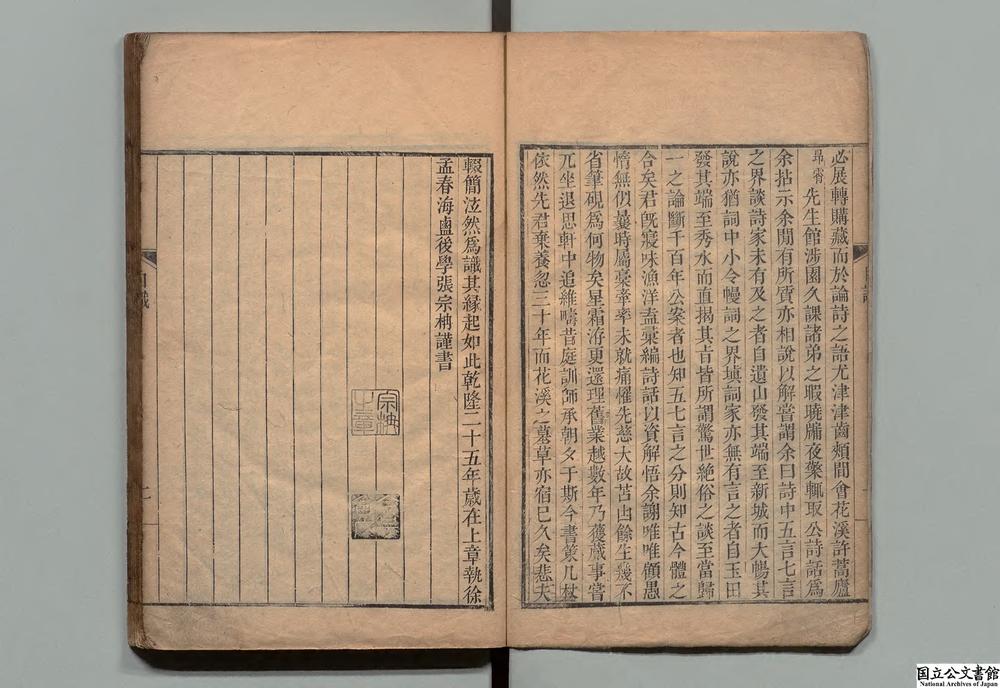 必展轉購藏而於論詩之語尤津津齒頰間會花溪許蒿廬
昂霄先生館涉園久課諸弟之暇曉牖夜檠輒取公詩話為
余拈示余間有所質亦相說以解嘗謂余曰詩中五言七言
之界談詩家未有及之者自遺山發其端至新城而大暢其
說亦猶詞中小令慢詞之界塡詞家亦無有言之者自玉田
發其端至秀水而直揭其旨皆所謂驚世絕俗之談至當歸
一之論斷千百年公案者也知五七言之分則知古今體之
合矣君旣寢味漁洋盍彙編詩話以資解悟余謝唯唯顧愚
惰無似曩時屬稾牽率未就痛懼先慈大故苫凷餘生幾不
省筆硯爲何物矣星霜洊更還理舊業越數年乃獲蕆事嘗
兀坐退思軒中追維疇昔庭訓師承朝夕于斯今書策几杖
依然先君棄養忽三十年而花溪之墓草亦宿已久矣悲夫
輟簡泫然爲識其緣起如此乾隆二十五年歲在上章執徐
孟春海鹽後學張宗柟謹書
宗柟之章
国立公文書館
National Archives of Japan